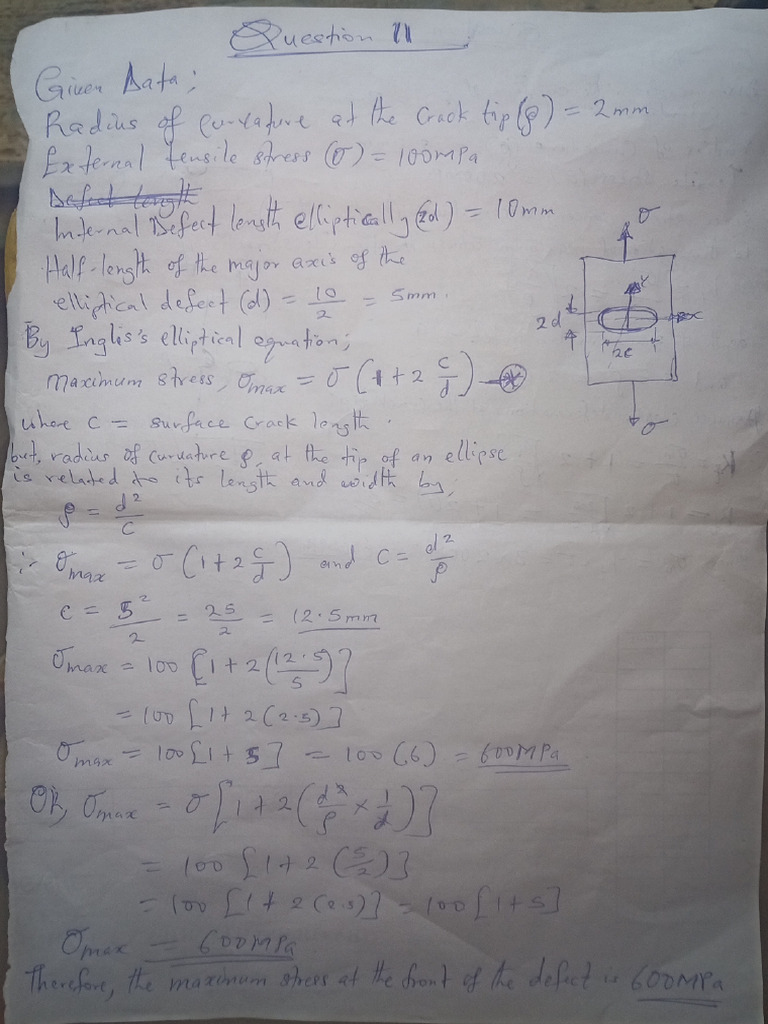 Question 11
Given Data;
Radius of curvature at the Crack tip (ρ) = 2mm
External tensile stress (σ) = 100MPa
Defect length
Internal Defect length elliptically (2d) = 10mm
Half-length of the major axis of the
elliptical defect (d) = 10/2 = 5mm.
By Inglis's elliptical equation;
Maximum stress, σmax = σ (1 + 2 c/d) — *
where c = surface crack length.
but, radius of curvature ρ, at the tip of an ellipse
is related to its length and width by;
ρ = d²/c
∴ σmax = σ (1 + 2 c/d) and c = d²/ρ
c = 5²/2 = 25/2 = 12.5mm
σmax = 100 [1 + 2 (12.5/5)]
= 100 [1 + 2 (2.5)]
σmax = 100 [1 + 5] = 100 (6) = 600MPa
OR, σmax = σ [1 + 2 (d²/ρ × 1/d)]
= 100 [1 + 2 (5/2)]
= 100 [1 + 2 (2.5)] = 100 [1 + 5]
σmax = 600MPa
Therefore, the maximum stress at the front of the defect is 600MPa
σ
Y
2d
x
2c
σ